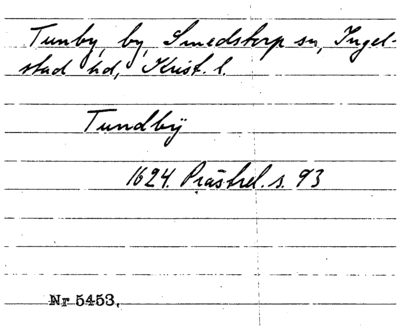 Tunby, by, Smedstorp sn, Ingel-
stad hd, Krist. l.
Tundbÿ
1624. Prästrel. s. 93
Nr 5453.